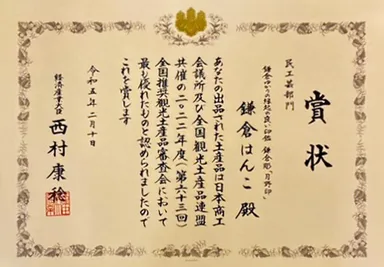 賞状
民工芸部門
鎌倉はんこ殿
あなたの出品された土産品は日本商工
会議所及び全国観光土産品連盟
共催の二〇二二年度(第六十三回)
全国推奨観光土産品審査会において
最も優れたものと認められましたので
これを賞します
令和五年二月十日
経済産業大臣
西村康稔